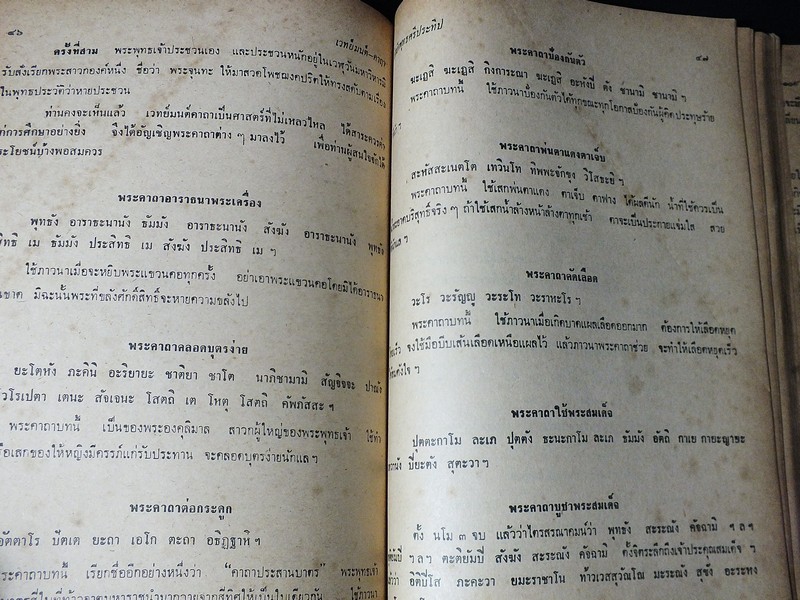 ๔๖
เวทย์มนต์-คาถา
ครั้งที่สาม พระพุทธเจ้าประชวนเอง และประชวนหนักอยู่ในเวฬุวันมหาวิหารมี
รับสั่งเรียกพระสาวกองค์หนึ่ง ชื่อว่า พระจุนทะ ให้มาสวดโพชฌงคปริตให้ทรงสดับตามเรื่อง
ในพุทธประวัติว่าหายประชวน
ท่านคงจะเห็นแล้ว เวทย์มนต์คาถาเป็นศาสตร์ที่ไม่เหลวไหล ได้สาระควรค่า
การศึกษาอย่างยิ่ง จึงได้อัญเชิญพระคาถาต่าง ๆ มาลงไว้ เพื่อท่านผู้สนใจจักได้
ประโยชน์บ้างพอสมควร
พระคาถาอาราธนาพระเครื่อง
พุทธัง อาราธะนานัง ธัมมัง อาราธะนานัง สังฆัง อาราธะนานัง พุทธัง
สิทธิ เม ธัมมัง ประสิทธิ เม สังฆัง ประสิทธิ เม ฯ
ใช้ภาวนาเมื่อจะหยิบพระแขวนคอทุกครั้ง อย่าเอาพระแขวนคอโดยมิได้อาราธนา
ขาด มิฉะนั้นพระที่ขลังศักดิ์สิทธิ์จะหายความขลังไป
พระคาถาคลอดบุตรง่าย
ยะโตหัง ภะคินิ อะริยายะ ชาติยา ชาโต นาภิชานามิ สัญจิจจะ ปาณัง
โวโรเปตา เตนะ สัจเจนะ โสตถิ เต โหตุ โสตถิ คัพภัสสะ ฯ
พระคาถาบทนี้ เป็นของพระองคุลิมาล สาวกผู้ใหญ่ของพระพุทธเจ้า ใช้ทำ
เสกของให้หญิงมีครรภ์แก่รับประทาน จะคลอดบุตรง่ายนักแล ฯ
พระคาถาต่อกระดูก
อัตตาโร ปัตเต ยะถา เอโก ตะถา อธิฏฐาหิ ฯ
พระคาถาบทนี้ เรียกชื่ออีกอย่างหนึ่งว่า “คาถาประสานบาตร” พระพุทธเจ้า
๔๗
พระคาถาป้องกันตัว
ฆะเฏสิ ฆะเฏสิ กิงการะณา ฆะเฏสิ อะหังปิ ตัง ชานามิ ชานามิ ฯ
พระคาถาบทนี้ ใช้ภาวนาป้องกันตัวได้ทุกขณะทุกโอกาสป้องกันผู้คิดประทุษร้าย
พระคาถาพ่นตาแดงตาเจ็บ
สะหัสสะเนตโต เทวินโท ทิพพะจักขุง วิโสธะยิ ฯ
พระคาถาบทนี้ ใช้เสกพ่นตาแดง ตาเจ็บ ตาฟาง ได้ผลดีนัก น้ำที่ใช้ควรเป็น
สะอาดบริสุทธิ์จริง ๆ ถ้าใช้เสกน้ำล้างหน้าล้างตาทุกเช้า ตาจะเป็นประกายแจ่มใส สวย
พระคาถาคัดเลือด
วะโร วะรัญญู วะระโท วะราหะโร ฯ
พระคาถาบทนี้ ใช้ภาวนาเมื่อเกิดบาดแผลเลือดออกมาก ต้องการให้เลือดหยุด
เร็ว จงใช้มือบีบเส้นเลือดเหนือแผลไว้ แล้วภาวนาพระคาถาช่วย จะทำให้เลือดหยุดเร็ว
ดังใจ ฯ
พระคาถาใช้พระสมเด็จ
ปุตตะกาโม ละเภ ปุตตัง ธะนะกาโม ละเภ ธัมมัง อัตถิ กาเย กายะญายะ
เทวานัง ปิยะตัง สุตะวา ฯ
พระคาถาบูชาพระสมเด็จ
ตั้ง นโม ๓ จบ แล้วว่าไตรสรณาคมน์ว่า พุทธัง สะระณัง คัจฉามิ ฯ ล ฯ
ฯ ล ฯ ตะติยัมปิ สังฆัง สะระณัง คัจฉามิ ตั้งจิตระลึกถึงเจ้าประคุณสมเด็จ ฯ
ว่า อิติปิโส ภะคะวา ยมะราชาโน ท้าวเวสสุวัณโณ มะระณัง สุขัง อะระหัง